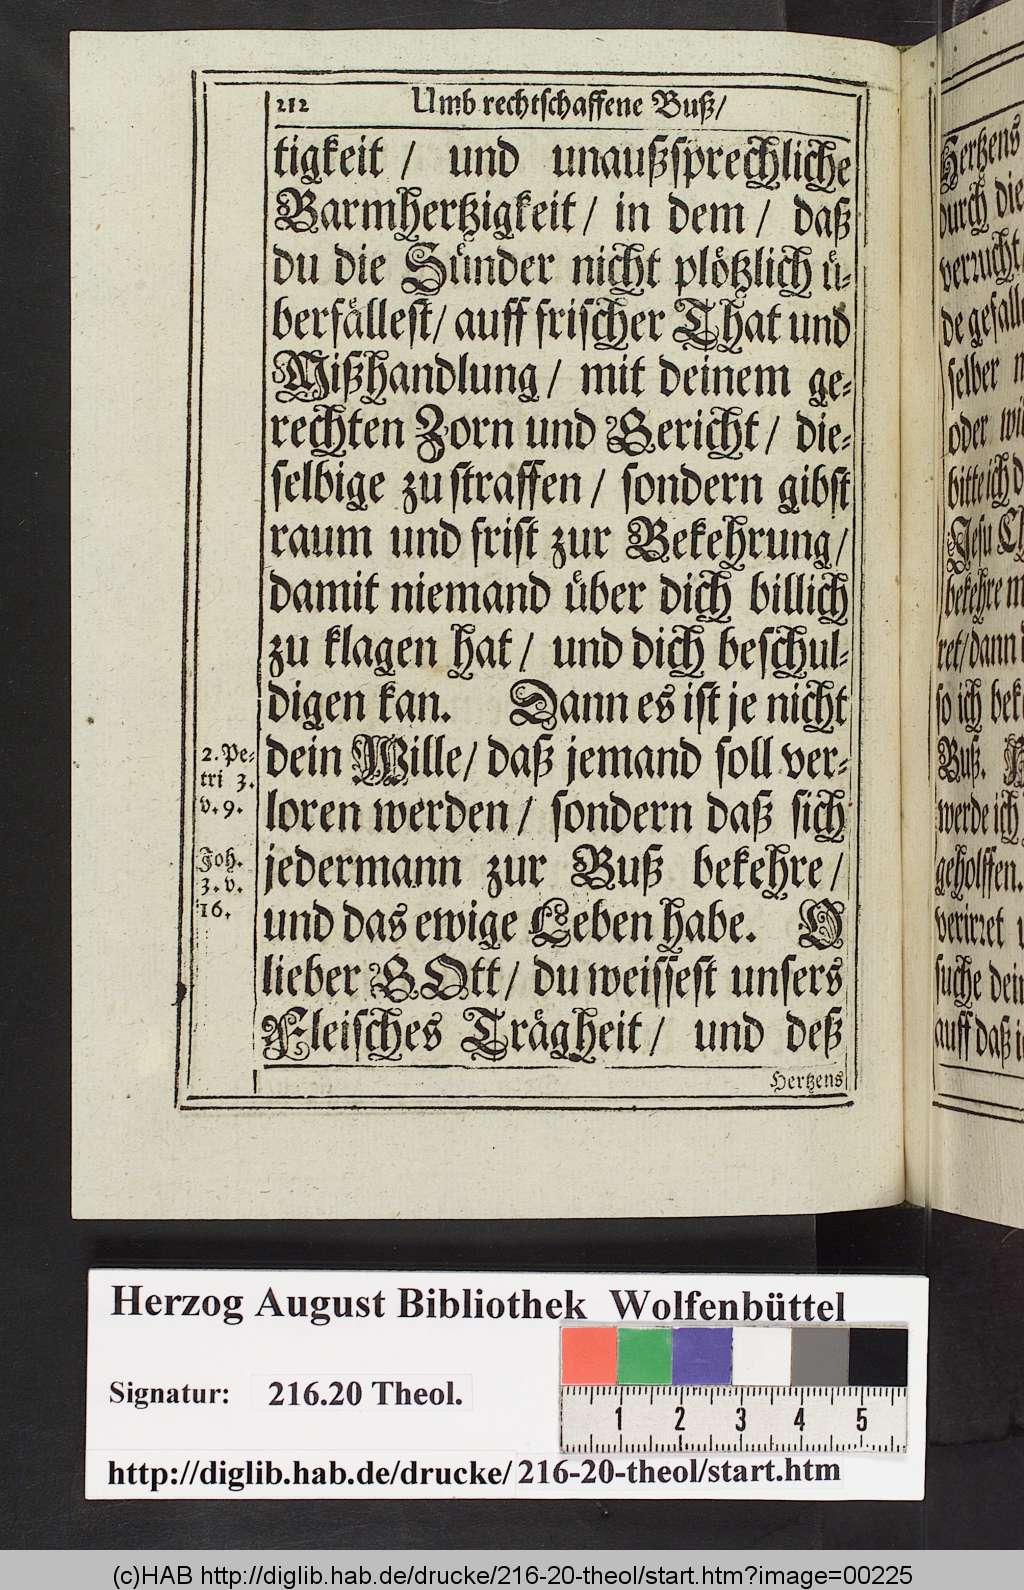 212 Umb rechtschaffene Buß/
tigkeit / und unaußsprechliche
Barmhertzigkeit / in dem / daß
du die Sünder nicht plötzlich ü-
berfällest / auff frischer That und
Mißhandlung / mit deinem ge-
rechten Zorn und Gericht / die-
selbige zu straffen / sondern gibst
raum und frist zur Bekehrung /
damit niemand über dich billich
zu klagen hat / und dich beschul-
digen kan. Dann es ist je nicht
dein Wille / daß jemand soll ver-
loren werden / sondern daß sich
jedermann zur Buß bekehre /
und das ewige Leben habe. O
lieber GOtt / du weissest unsers
Fleisches Trägheit / und deß
Hertzens
2. Pe-
tri 3.
v. 9.
Joh.
3. v.
16.
Hertzens
durch die
verrucht
de gefalle
selber
oder
bitte ich
Jesu
bekehre
ret / dann
so ich bek
Buß.
werde ich
geholffen.
verirret
suche dein
auff daß
Herzog August Bibliothek Wolfenbüttel
Signatur: 216.20 Theol.
1 2 3 4 5
http://diglib.hab.de/drucke/216-20-theol/start.htm
(c)HAB http://diglib.hab.de/drucke/216-20-theol/start.htm?image=00225